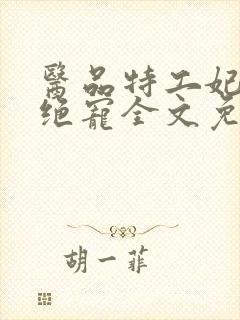 醫品特工妃
绝寵全文免
胡一菲